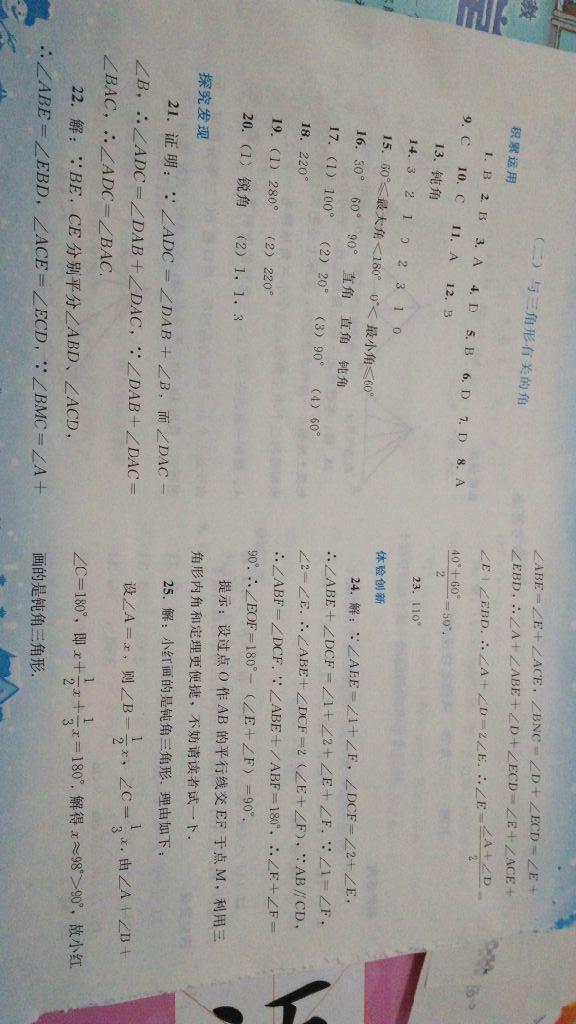 (二) 与三角形有关的角
积累运用
1. B 2. B 3. A 4. D 5. B 6. D 7. D 8. A
9. C 10. C 11. A 12. B
13. 钝角
14. 3 2 1 0 2 3 1 0
15. 60°≤最大角<180° 0°<最小角≤60°
16. 30° 60° 90° 直角 直角 钝角
17. (1) 100° (2) 20° (3) 90° (4) 60°
18. 220°
19. (1) 280° (2) 220°
20. (1) 锐角 (2) 1, 1, 3
探究发现
21. 证明: ∵∠ADC=∠DAB+∠B, 而∠DAC=
∠B, ∴∠ADC=∠DAB+∠DAC, ∵∠DAB+∠DAC=
∠BAC, ∴∠ADC=∠BAC.
22. 解: ∵BE, CE 分别平分∠ABD、∠ACD,
∴∠ABE=∠EBD, ∠ACE=∠ECD, ∵∠BMC=∠A+
∠ABE=∠E+∠ACE, ∠BNC=∠D+∠ECD=∠E+
∠EBD, ∴∠A+∠ABE+∠D+∠ECD=∠E+∠ACE+
∠E+∠EBD, ∴∠A+∠D=2∠E, ∴∠E=(∠A+∠D)/2=
(40°+60°)/2=50°.
23. 110°
体验创新
24. 解: ∵∠ABE=∠1+∠F, ∠DCF=∠2+∠E,
∴∠ABE+∠DCF=∠1+∠2+∠E+∠F, ∵∠1=∠F,
∠2=∠E, ∴∠ABE+∠DCF=2(∠E+∠F), ∵AB∥CD,
∴∠ABF=∠DCF, ∵∠ABE+∠ABF=180°, ∴∠E+∠F=
90°, ∴∠EOF=180°-(∠E+∠F)=90°.
提示: 设过点 O 作 AB 的平行线交 EF 于点 M, 利用三
角形内角和定理更便捷, 不妨请读者试一下.
25. 解: 小红画的是钝角三角形. 理由如下:
设∠A=x, 则∠B=1/2x, ∠C=1/3x, 由∠A+∠B+
∠C=180°, 即 x+1/2x+1/3x=180°, 解得 x≈98°>90°, 故小红
画的是钝角三角形.
教